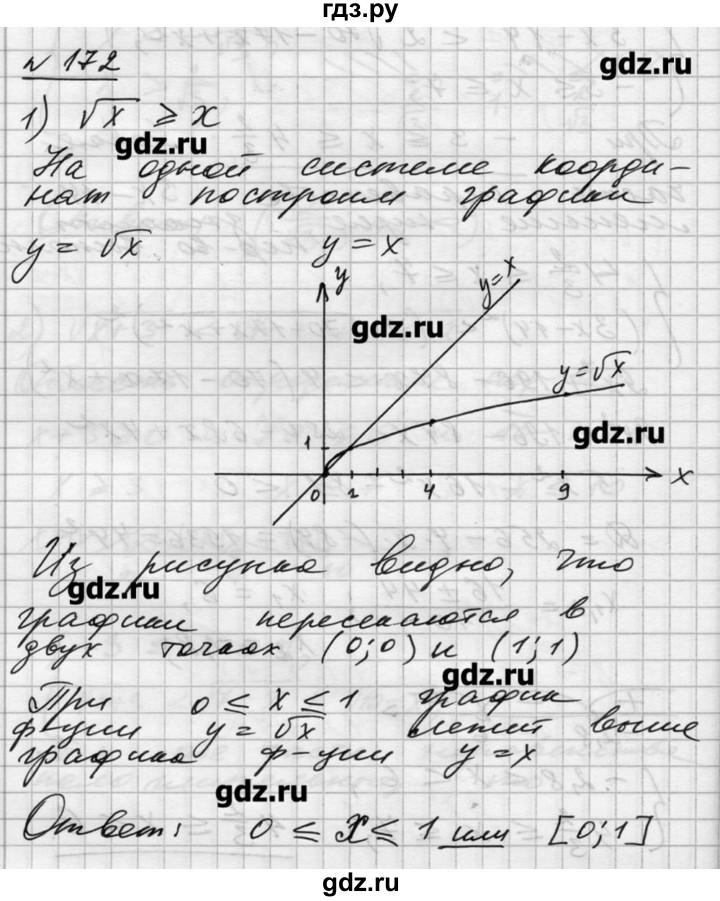 гдз.ру
№ 172
gdz.ru
1) √x ⩾ x
gdz.ru
На одной системе коорди-
нат построим графики
y = √x y = x
y
y=x
gdz.ru
y=√x
gdz.ru
1
0 1 4 9 x
Из рисунка видно, что
gdz.ru
графики пересекаются в
двух точках (0;0) и (1;1)
gdz.ru
При 0 ≤ x ≤ 1 график
ф-уии y = √x лежит выше
графика ф-уии y = x
gdz.ru
Ответ: 0 ≤ x ≤ 1 или [0;1]
gdz.ru